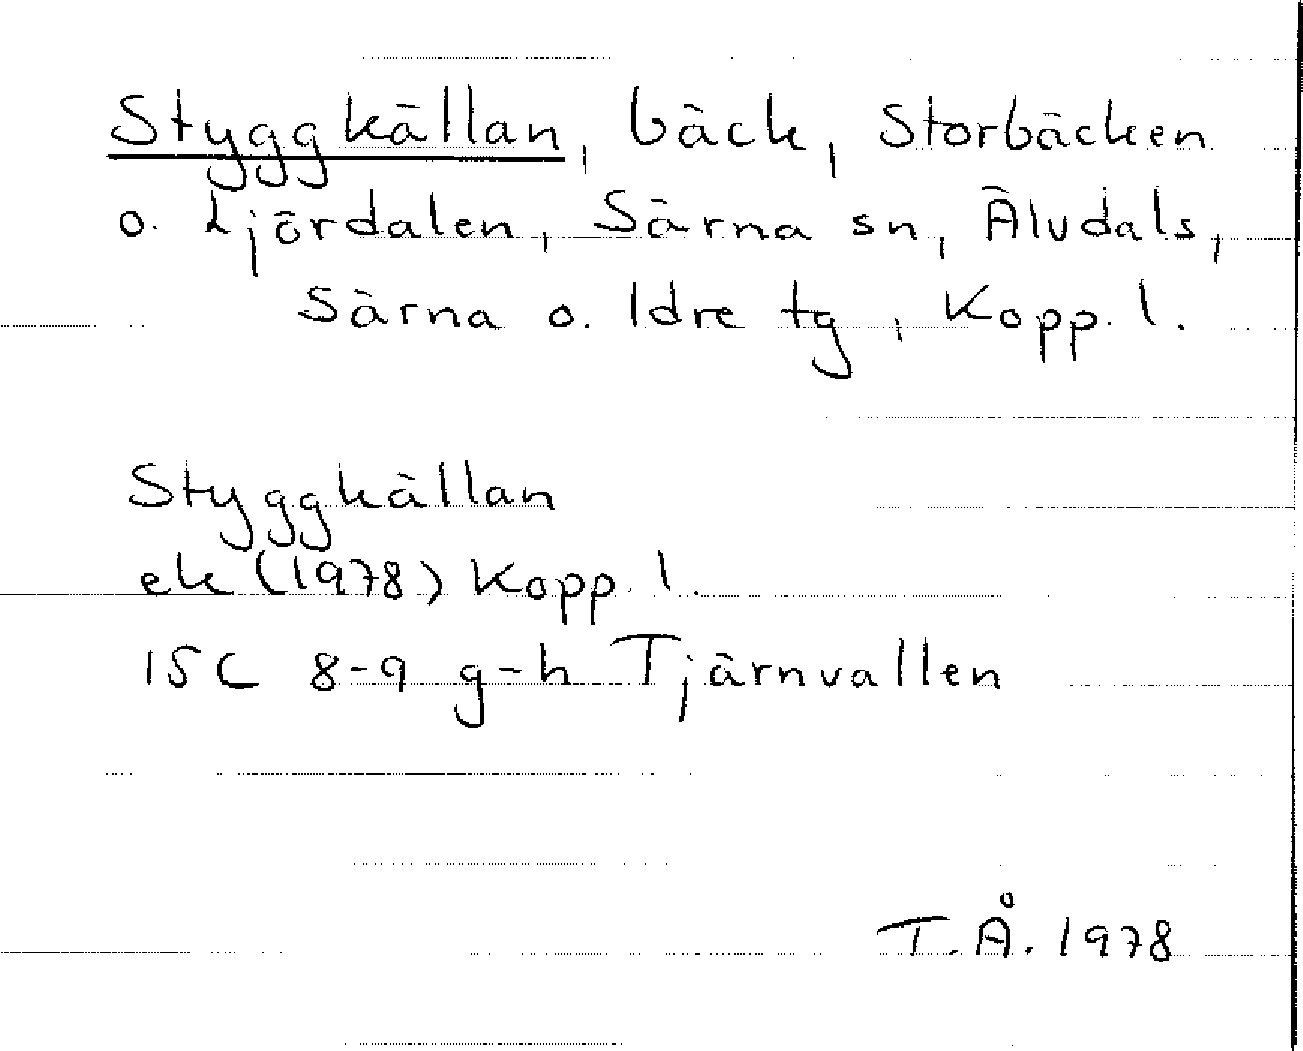 Styggkällan, bäck, Storbäcken
o. Ljördalen, Särna sn, Älvdals,
Särna o. Idre tg, Kopp. l.
Styggkällan
ek (1978) Kopp. l.
15C 8-9 g-h Tjärnvallen
T.Å. 1978